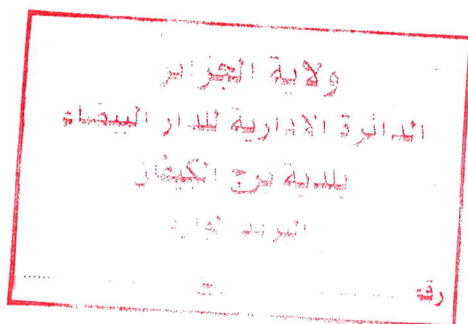 ولاية الجزائر
الدائرة الادارية للدار البيضاء
بلدية برج الكيفان
البريد الوارد
رقم ........ في ........